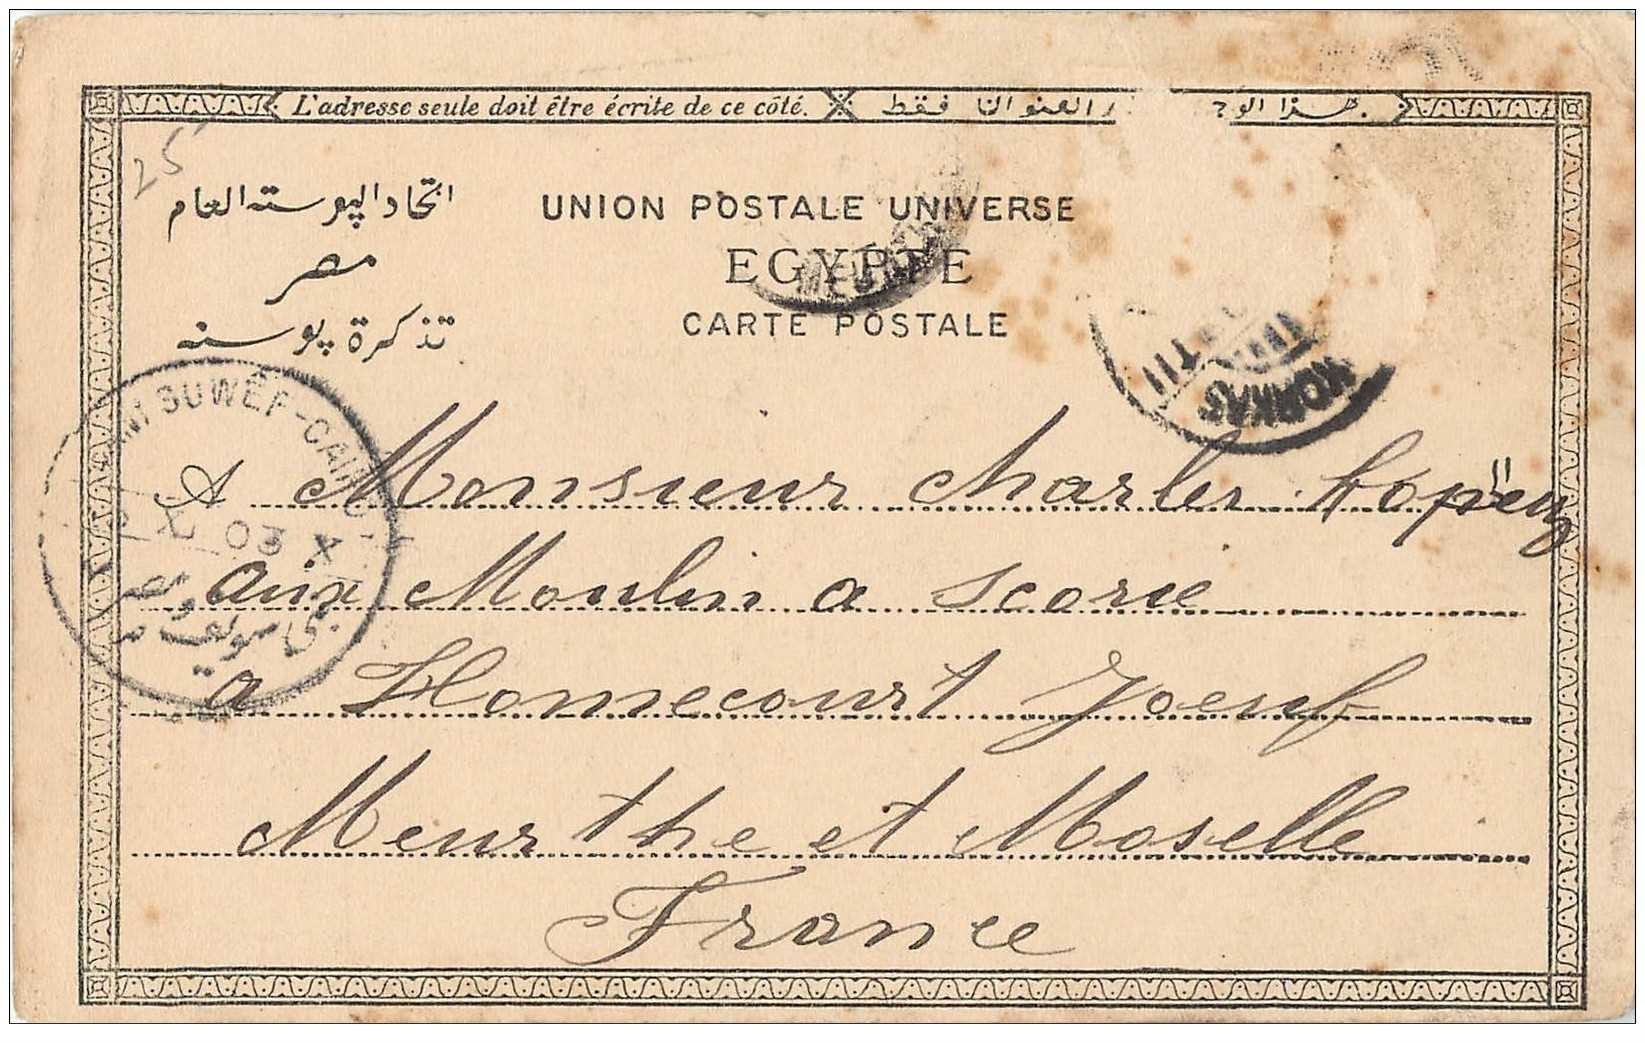 L'adresse seule doit être écrite de ce côté.
هذا الوجه ر العنوان فقط
25
اتحاد البوسته العام
مصر
تذكرة بوسته
UNION POSTALE UNIVERSE
EGYPTE
CARTE POSTALE
SUWÊF-CAIRO
X 03 X
بنى سويف ومصر
A Monsieur Charles
aux Moulin a Scorie
a Homecourt Joeuf
Meurthe et Moselle
France